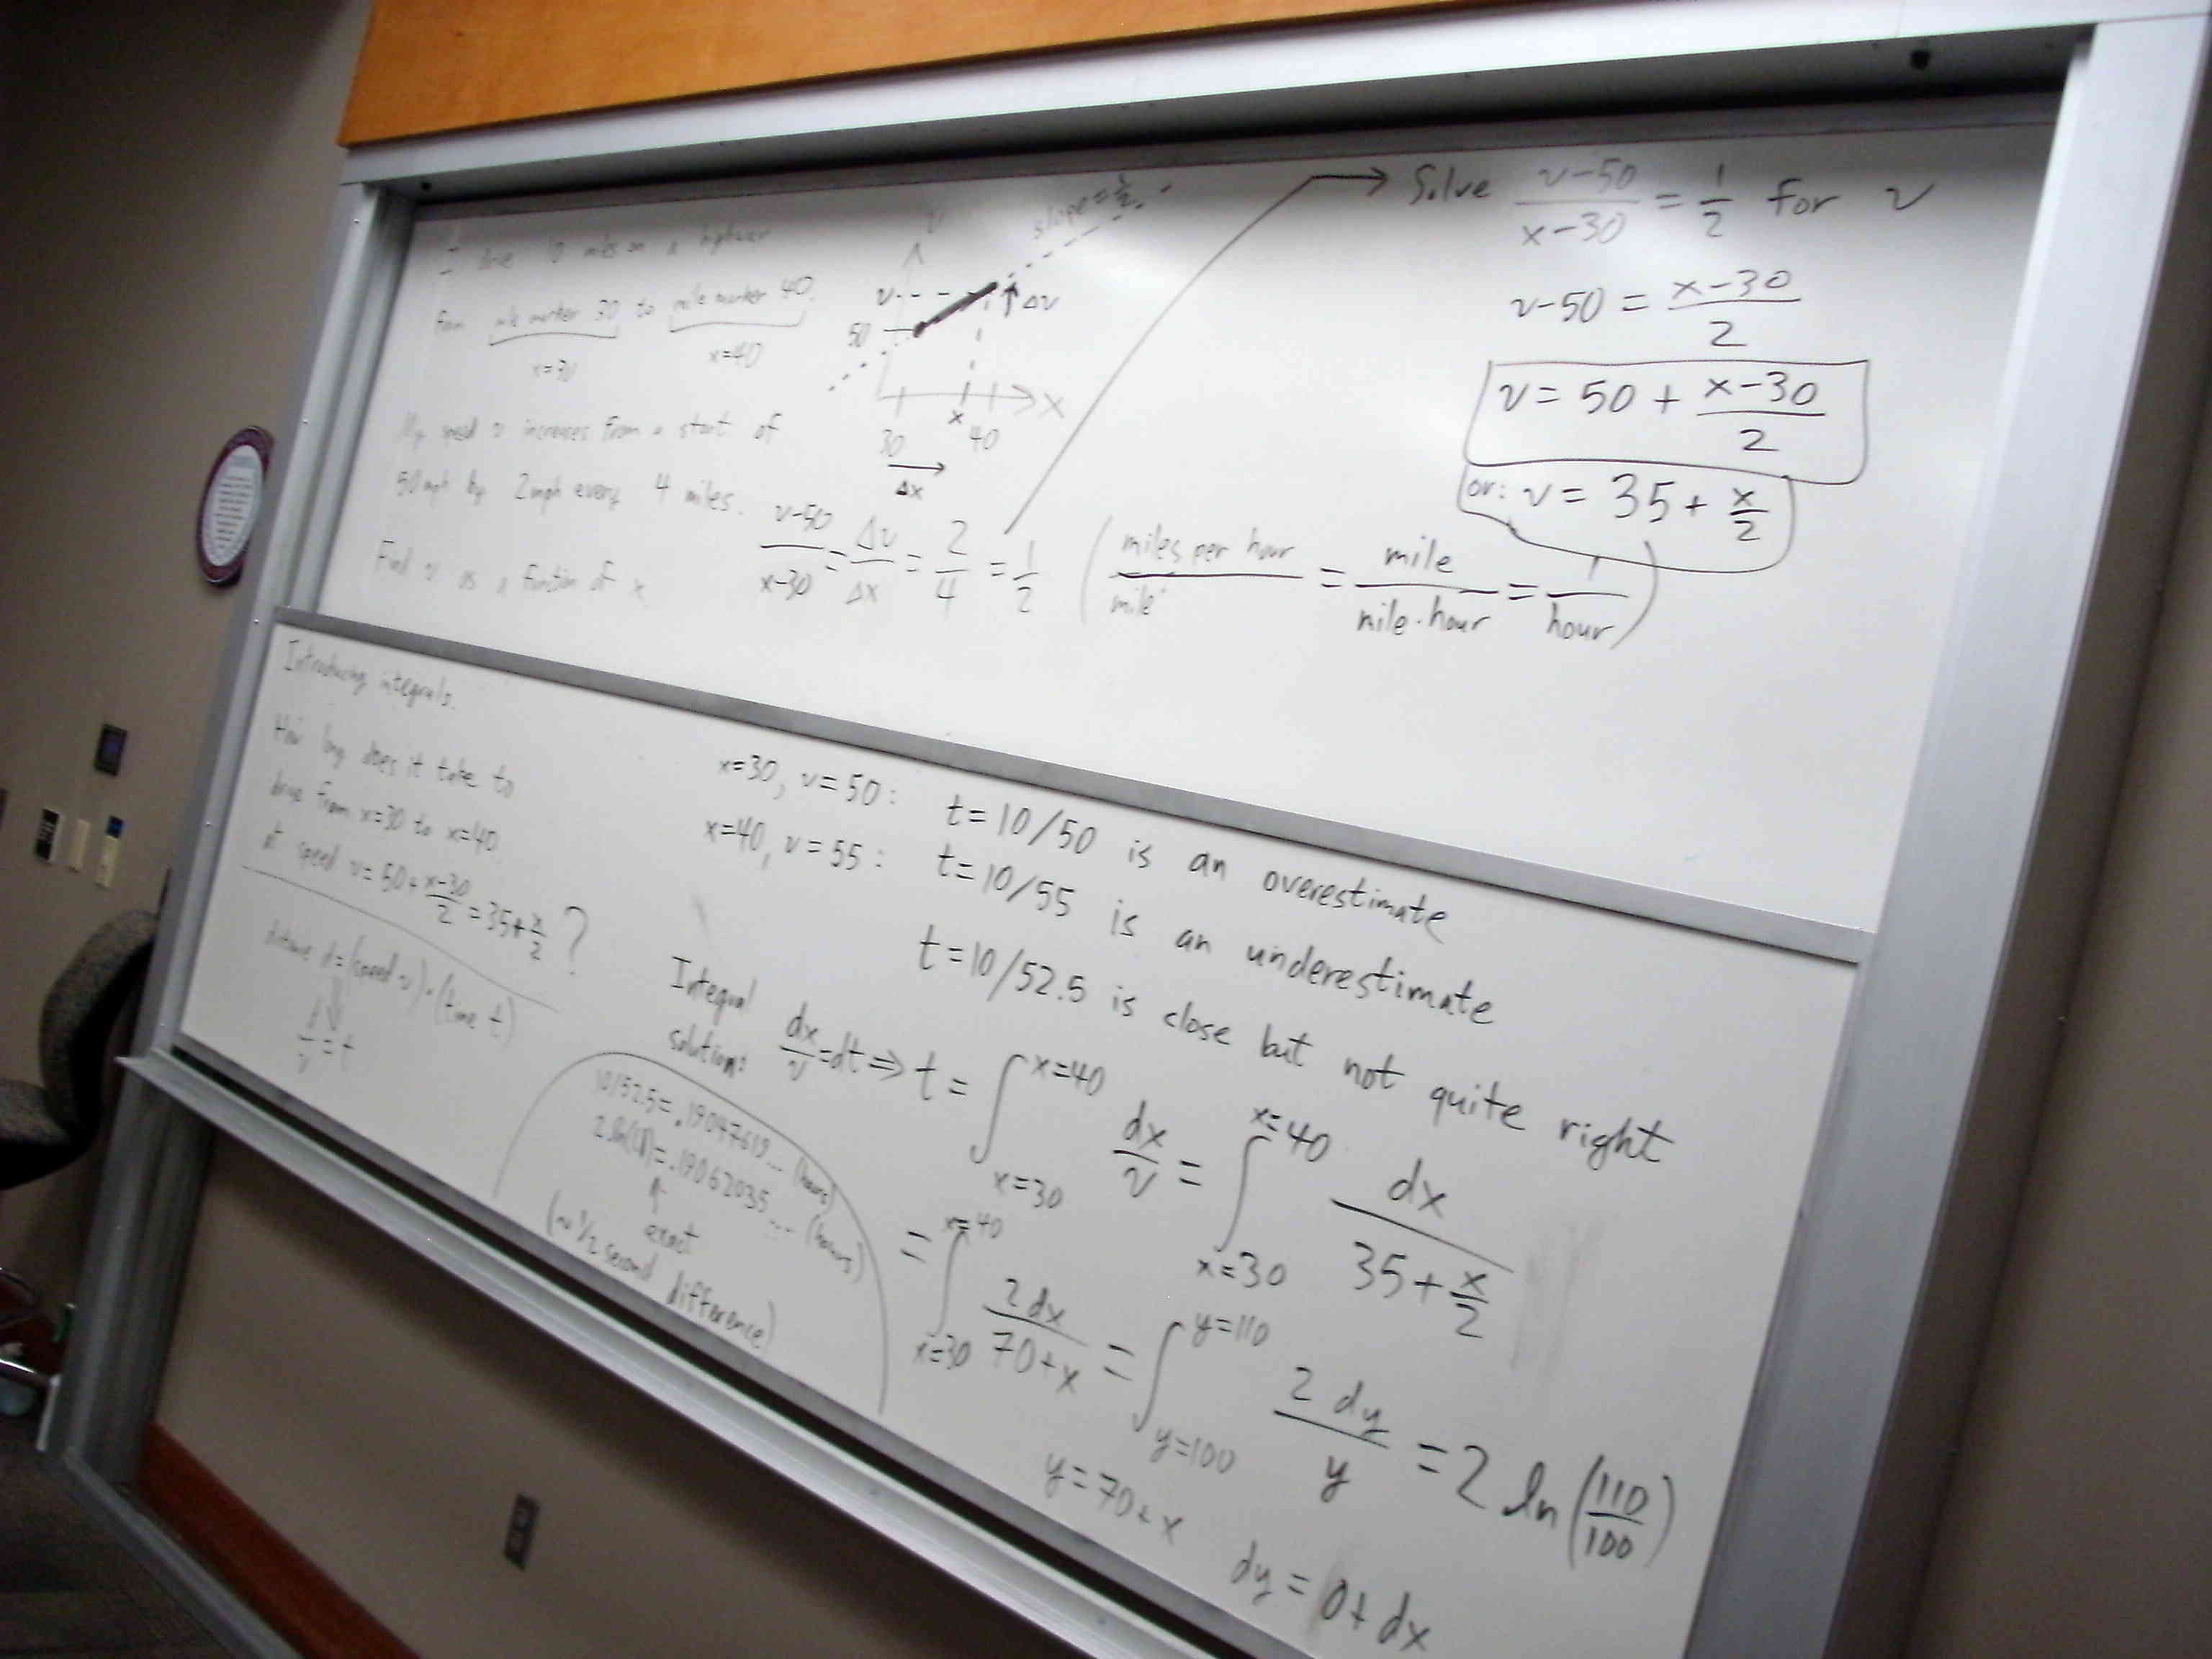 I drive 10 miles on a highway
from mile marker 30 to mile marker 40.
x=30 x=40
My speed v increases from a start of
50 mph by 2 mph every 4 miles.
Find v as a function of x
v
slope = 1/2
v
Δv
50
x
x
30 40
Δx
(v-50)/(x-30) = Δv/Δx = 2/4 = 1/2
(miles per hour/mile = mile/mile·hour = 1/hour)
→ Solve (v-50)/(x-30) = 1/2 for v
v-50 = (x-30)/2
v = 50 + (x-30)/2
or: v = 35 + x/2
Introducing integrals.
How long does it take to
drive from x=30 to x=40
at speed v = 50 + (x-30)/2 = 35 + x/2 ?
distance d = (speed v)·(time t)
⇓
d/v = t
x=30, v=50: t=10/50 is an overestimate
x=40, v=55: t=10/55 is an underestimate
t=10/52.5 is close but not quite right
Integral
solution: dx/v = dt ⇒ t = ∫_{x=30}^{x=40} dx/v = ∫_{x=30}^{x=40} dx/(35 + x/2)
= ∫_{x=30}^{x=40} 2dx/(70+x) = ∫_{y=100}^{y=110} 2 dy/y = 2 ln(110/100)
y = 70+x
dy = 0+dx
10/52.5 = .19047619... (hours)
2 ln(1.1) = .19062035... (hours)
↑
exact
(~1/2 second difference)